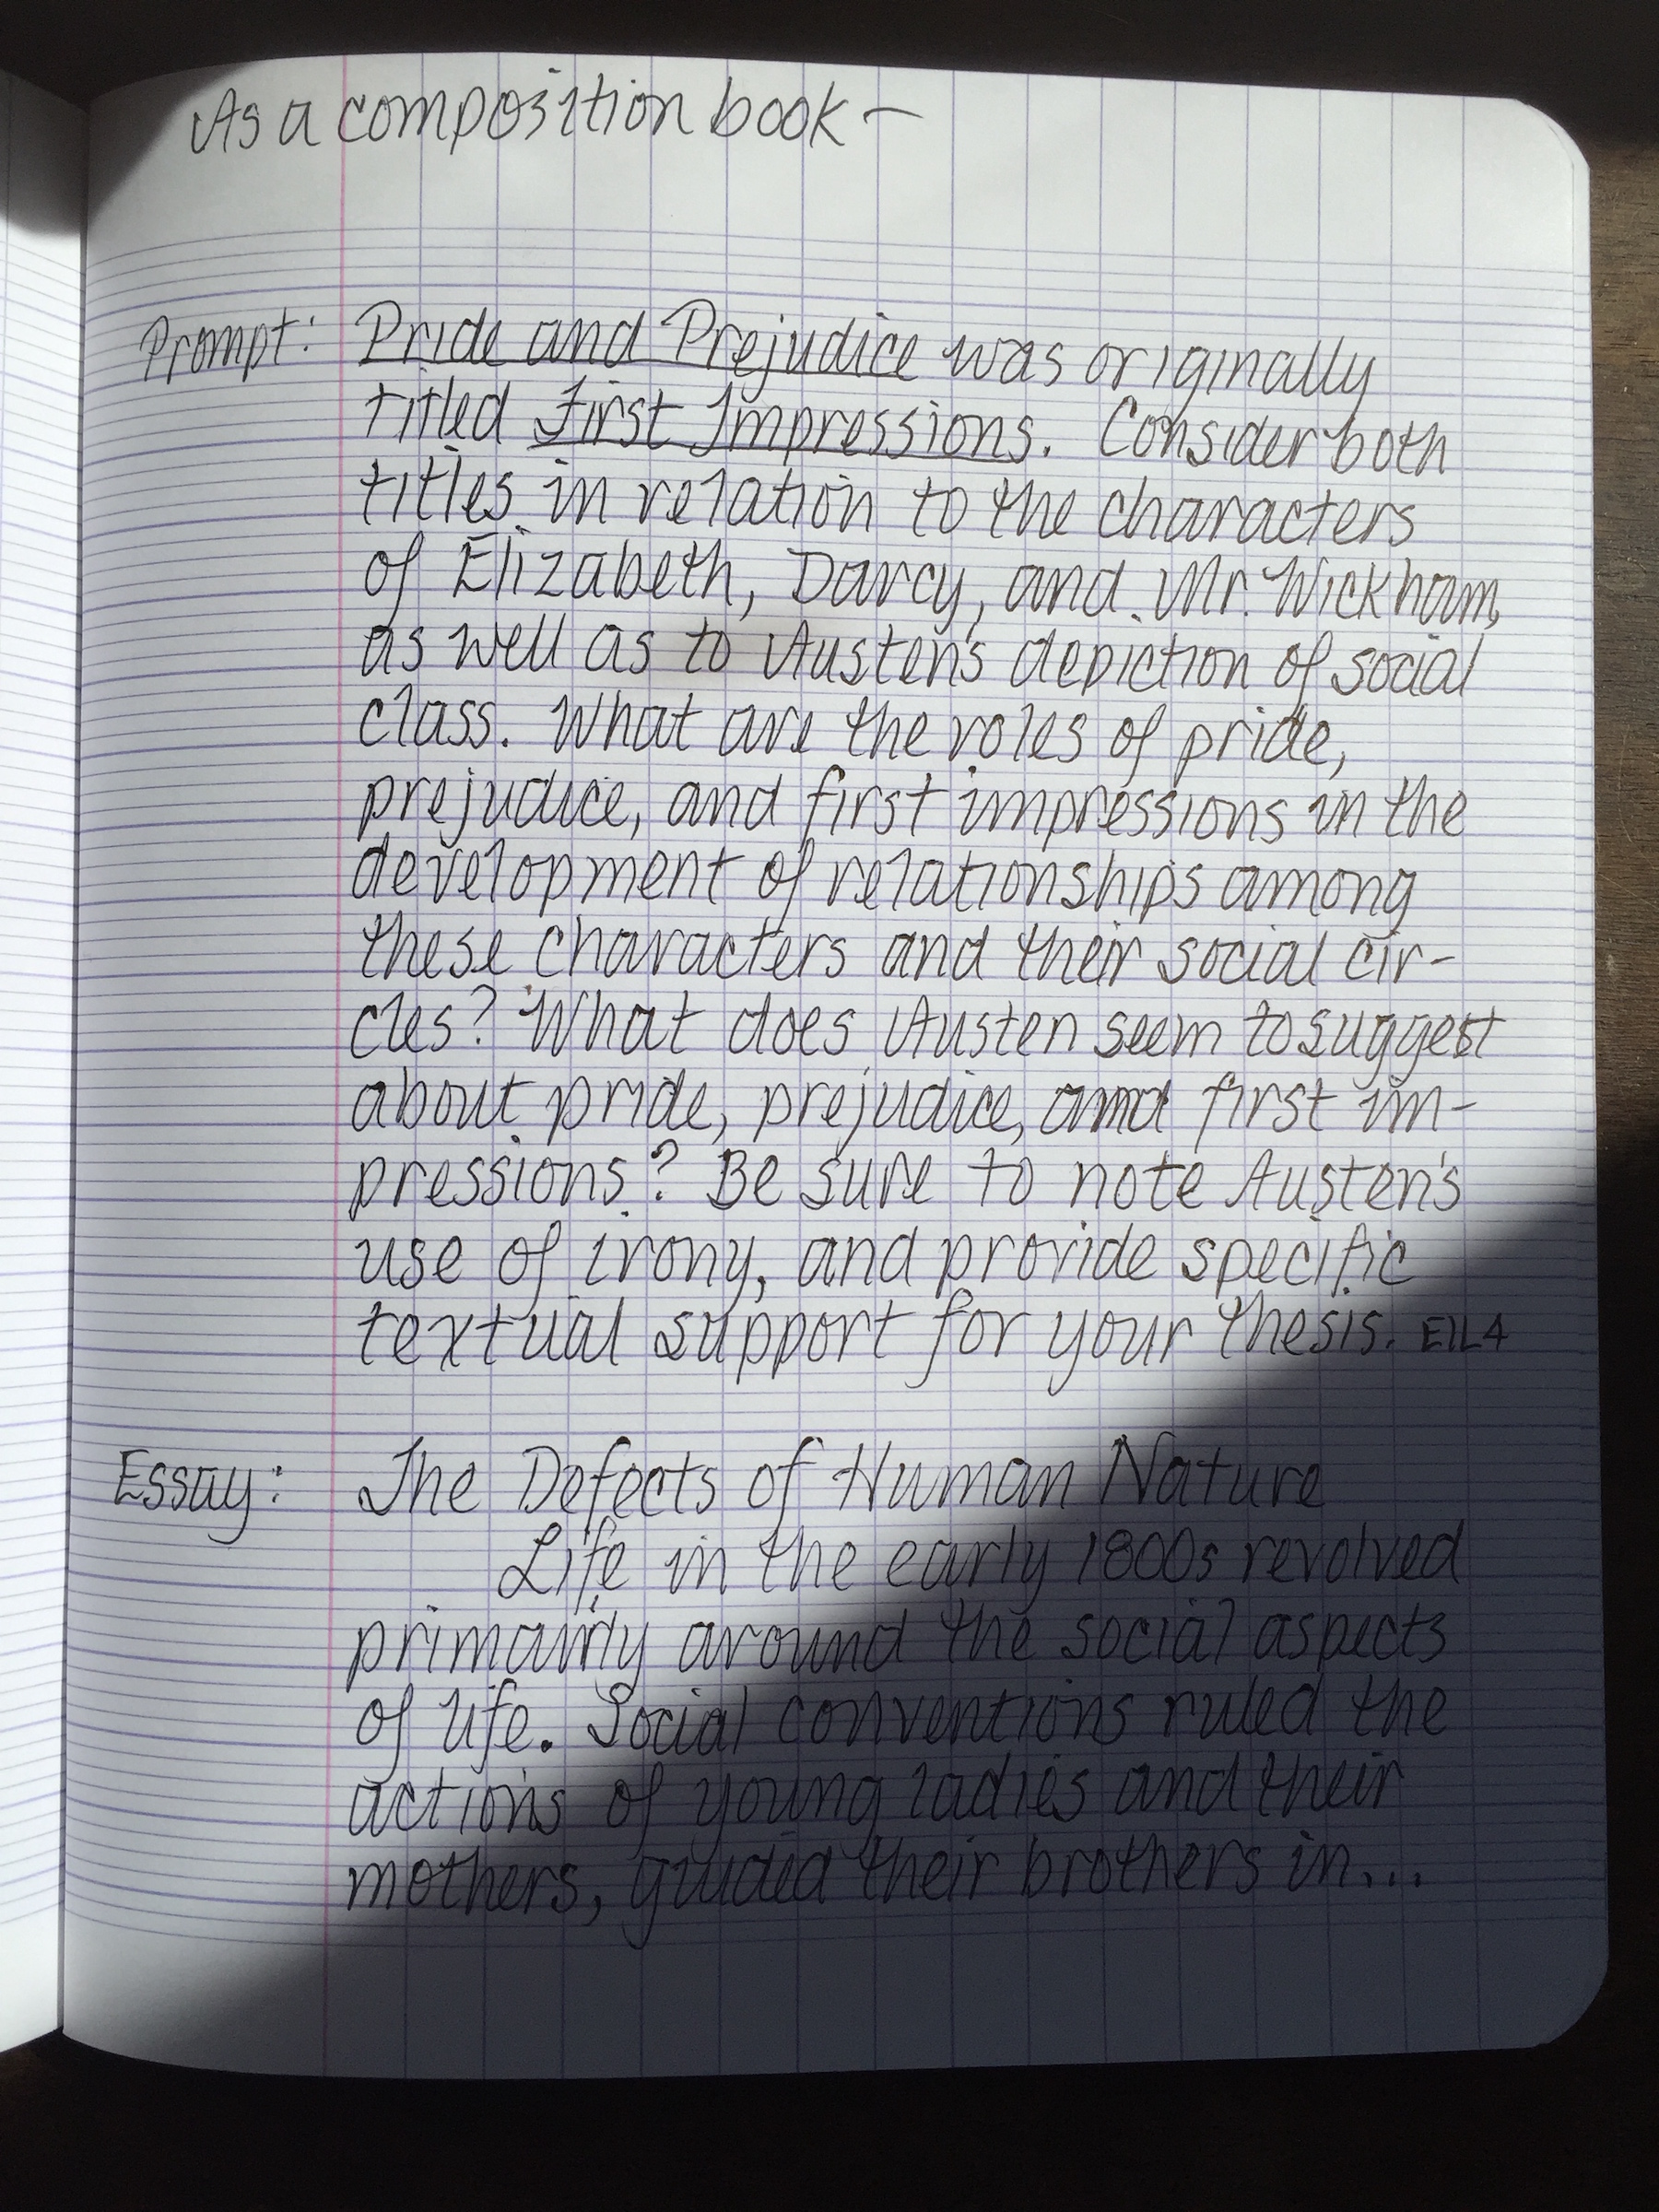 As a composition book —
Prompt: Pride and Prejudice was originally
titled First Impressions. Consider both
titles in relation to the characters
of Elizabeth, Darcy, and Mr. Wickham,
as well as to Austen's depiction of social
class. What are the roles of pride,
prejudice, and first impressions in the
development of relationships among
these characters and their social cir-
cles? What does Austen seem to suggest
about pride, prejudice, and first im-
pressions? Be sure to note Austen's
use of irony, and provide specific
textual support for your thesis. E1L4
Essay: The Defects of Human Nature
Life in the early 1800s revolved
primarily around the social aspects
of life. Social conventions ruled the
actions of young ladies and their
mothers, guided their brothers in...